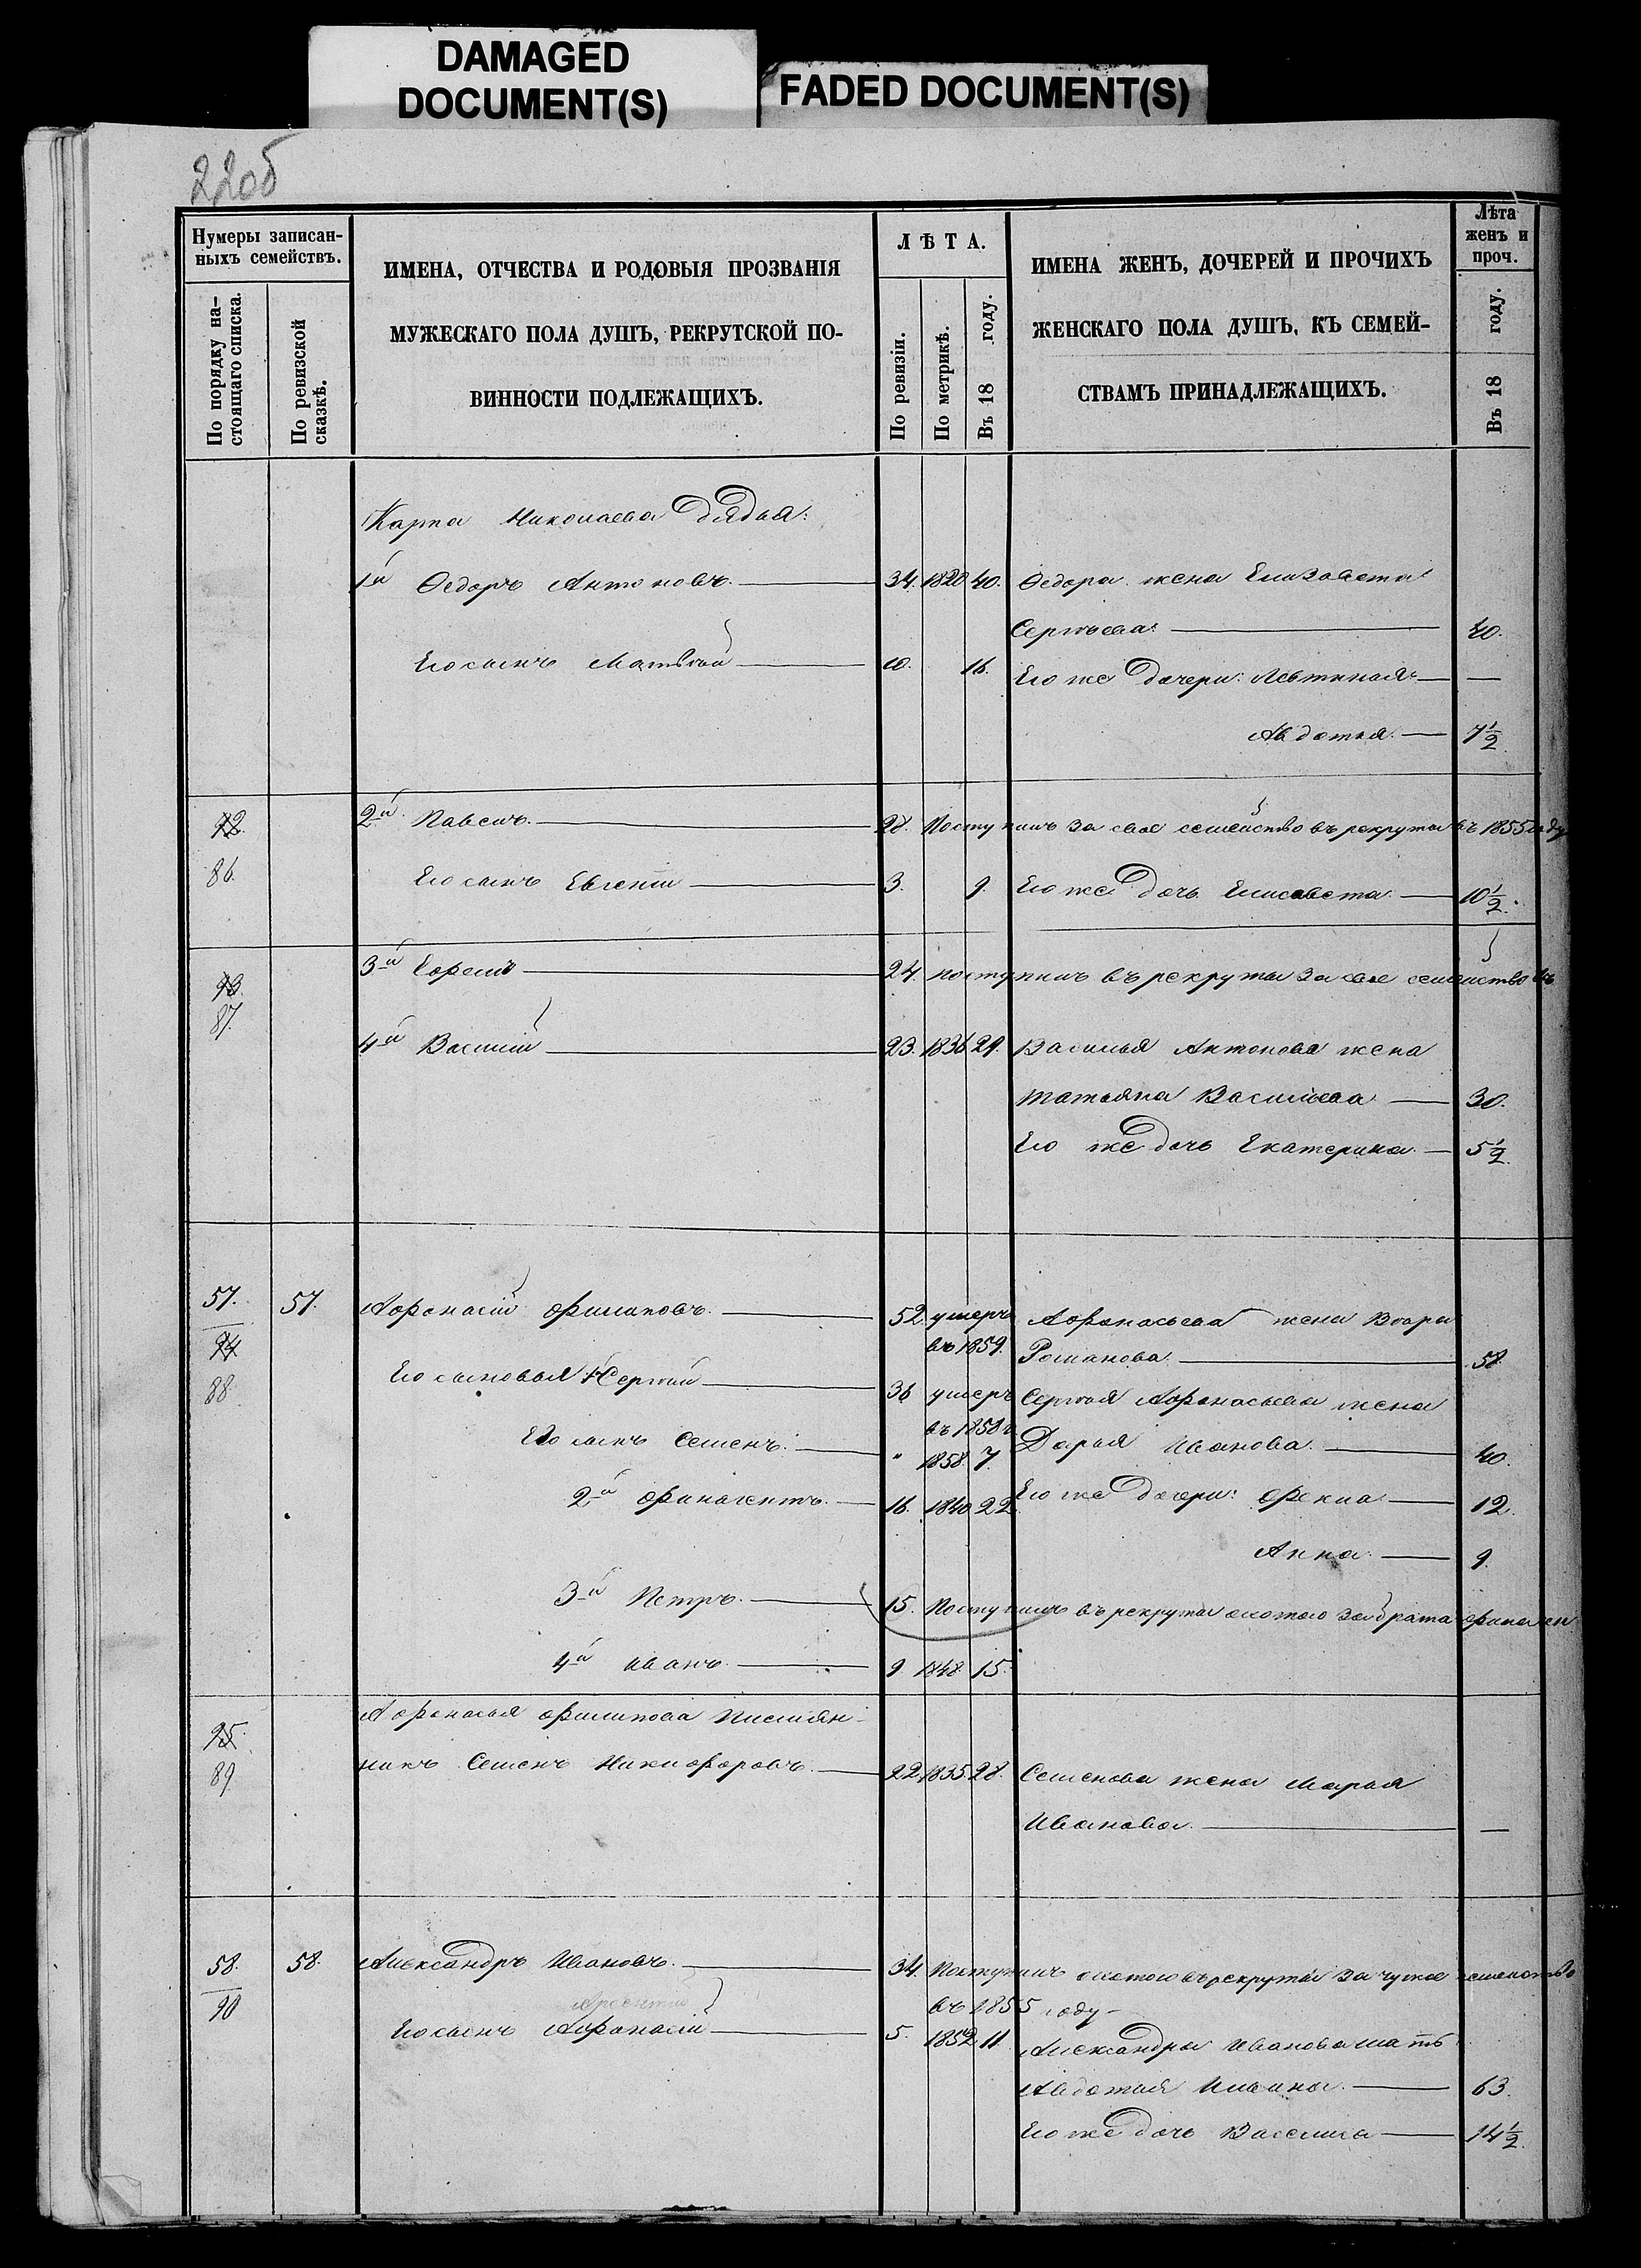 DAMAGED
DOCUMENT(S)
FADED DOCUMENT(S)
22об
Нумеры записан-
ныхъ семействъ.
По порядку на-
стоящаго списка.
По ревизской
сказкѣ.
ИМЕНА, ОТЧЕСТВА И РОДОВЫЯ ПРОЗВАНІЯ
МУЖЕСКАГО ПОЛА ДУШЪ, РЕКРУТСКОЙ ПО-
ВИННОСТИ ПОДЛЕЖАЩИХЪ.
ЛѢТА.
По ревизіи.
По метрикѣ.
Въ 18 году.
ИМЕНА ЖЕНЪ, ДОЧЕРЕЙ И ПРОЧИХЪ
ЖЕНСКАГО ПОЛА ДУШЪ, КЪ СЕМЕЙ-
СТВАМЪ ПРИНАДЛЕЖАЩИХЪ.
Лѣта
женъ и
проч.
Въ 18 году.
Карпа Николаева дядья:
1й Ѳедоръ Антоновъ. 34. 1820 40. Ѳедора жена Елизавета
Сергѣева. 40.
Его сынъ Матвѣй 10. 16. Его же дочери: —
Авдотья. 7½
92. 2й Павелъ. 28. Поступилъ за свое семейство въ рекруты въ 1855 году
86. Его сынъ Евгеній 3. 9. Его же дочь Елисавета. 10½.
93. 3й Ефремъ 24. поступилъ въ рекруты за свое семейство въ
87.
4й Василій 23. 1836 29. Василья Антонова жена
Татьяна Васильева 30.
Его же дочь Екатерина. 5½.
57. 57. Афонасій Филиповъ. 52. умеръ Афонасьева жена
въ 1859. Романова. 58.
94.
88. Его сыновья 1 Сергѣй 36 умеръ Сергѣя Афонасьева жена
въ 1858 г.
Его сынъ Семенъ. " 1858. 7. Дарья Иванова. 40.
2й Финогентъ. 16. 1840 22. Его же дочери: Фекла 12.
Анна. 9.
3й Петръ. 15. Поступилъ въ рекруты охотою за брата Финоген
4й Иванъ 9 1848 15.
95. Афонасья Филипова племян-
89. никъ Семенъ Никифоровъ. 22. 1835 28. Семенова жена Марья
Иванова. —
58. 58. Александръ Ивановъ. 34. Поступилъ охотою въ рекруты за чужое семейство
90 въ 1855 году
Его сынъ Афонасій 5. 1852 11. Александра Иванова мать
Авдотья Ильина. 63.
Его же дочь Васелиса 14½.